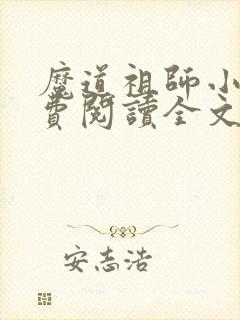 魔道祖師小
費閱讀全文
安志浩